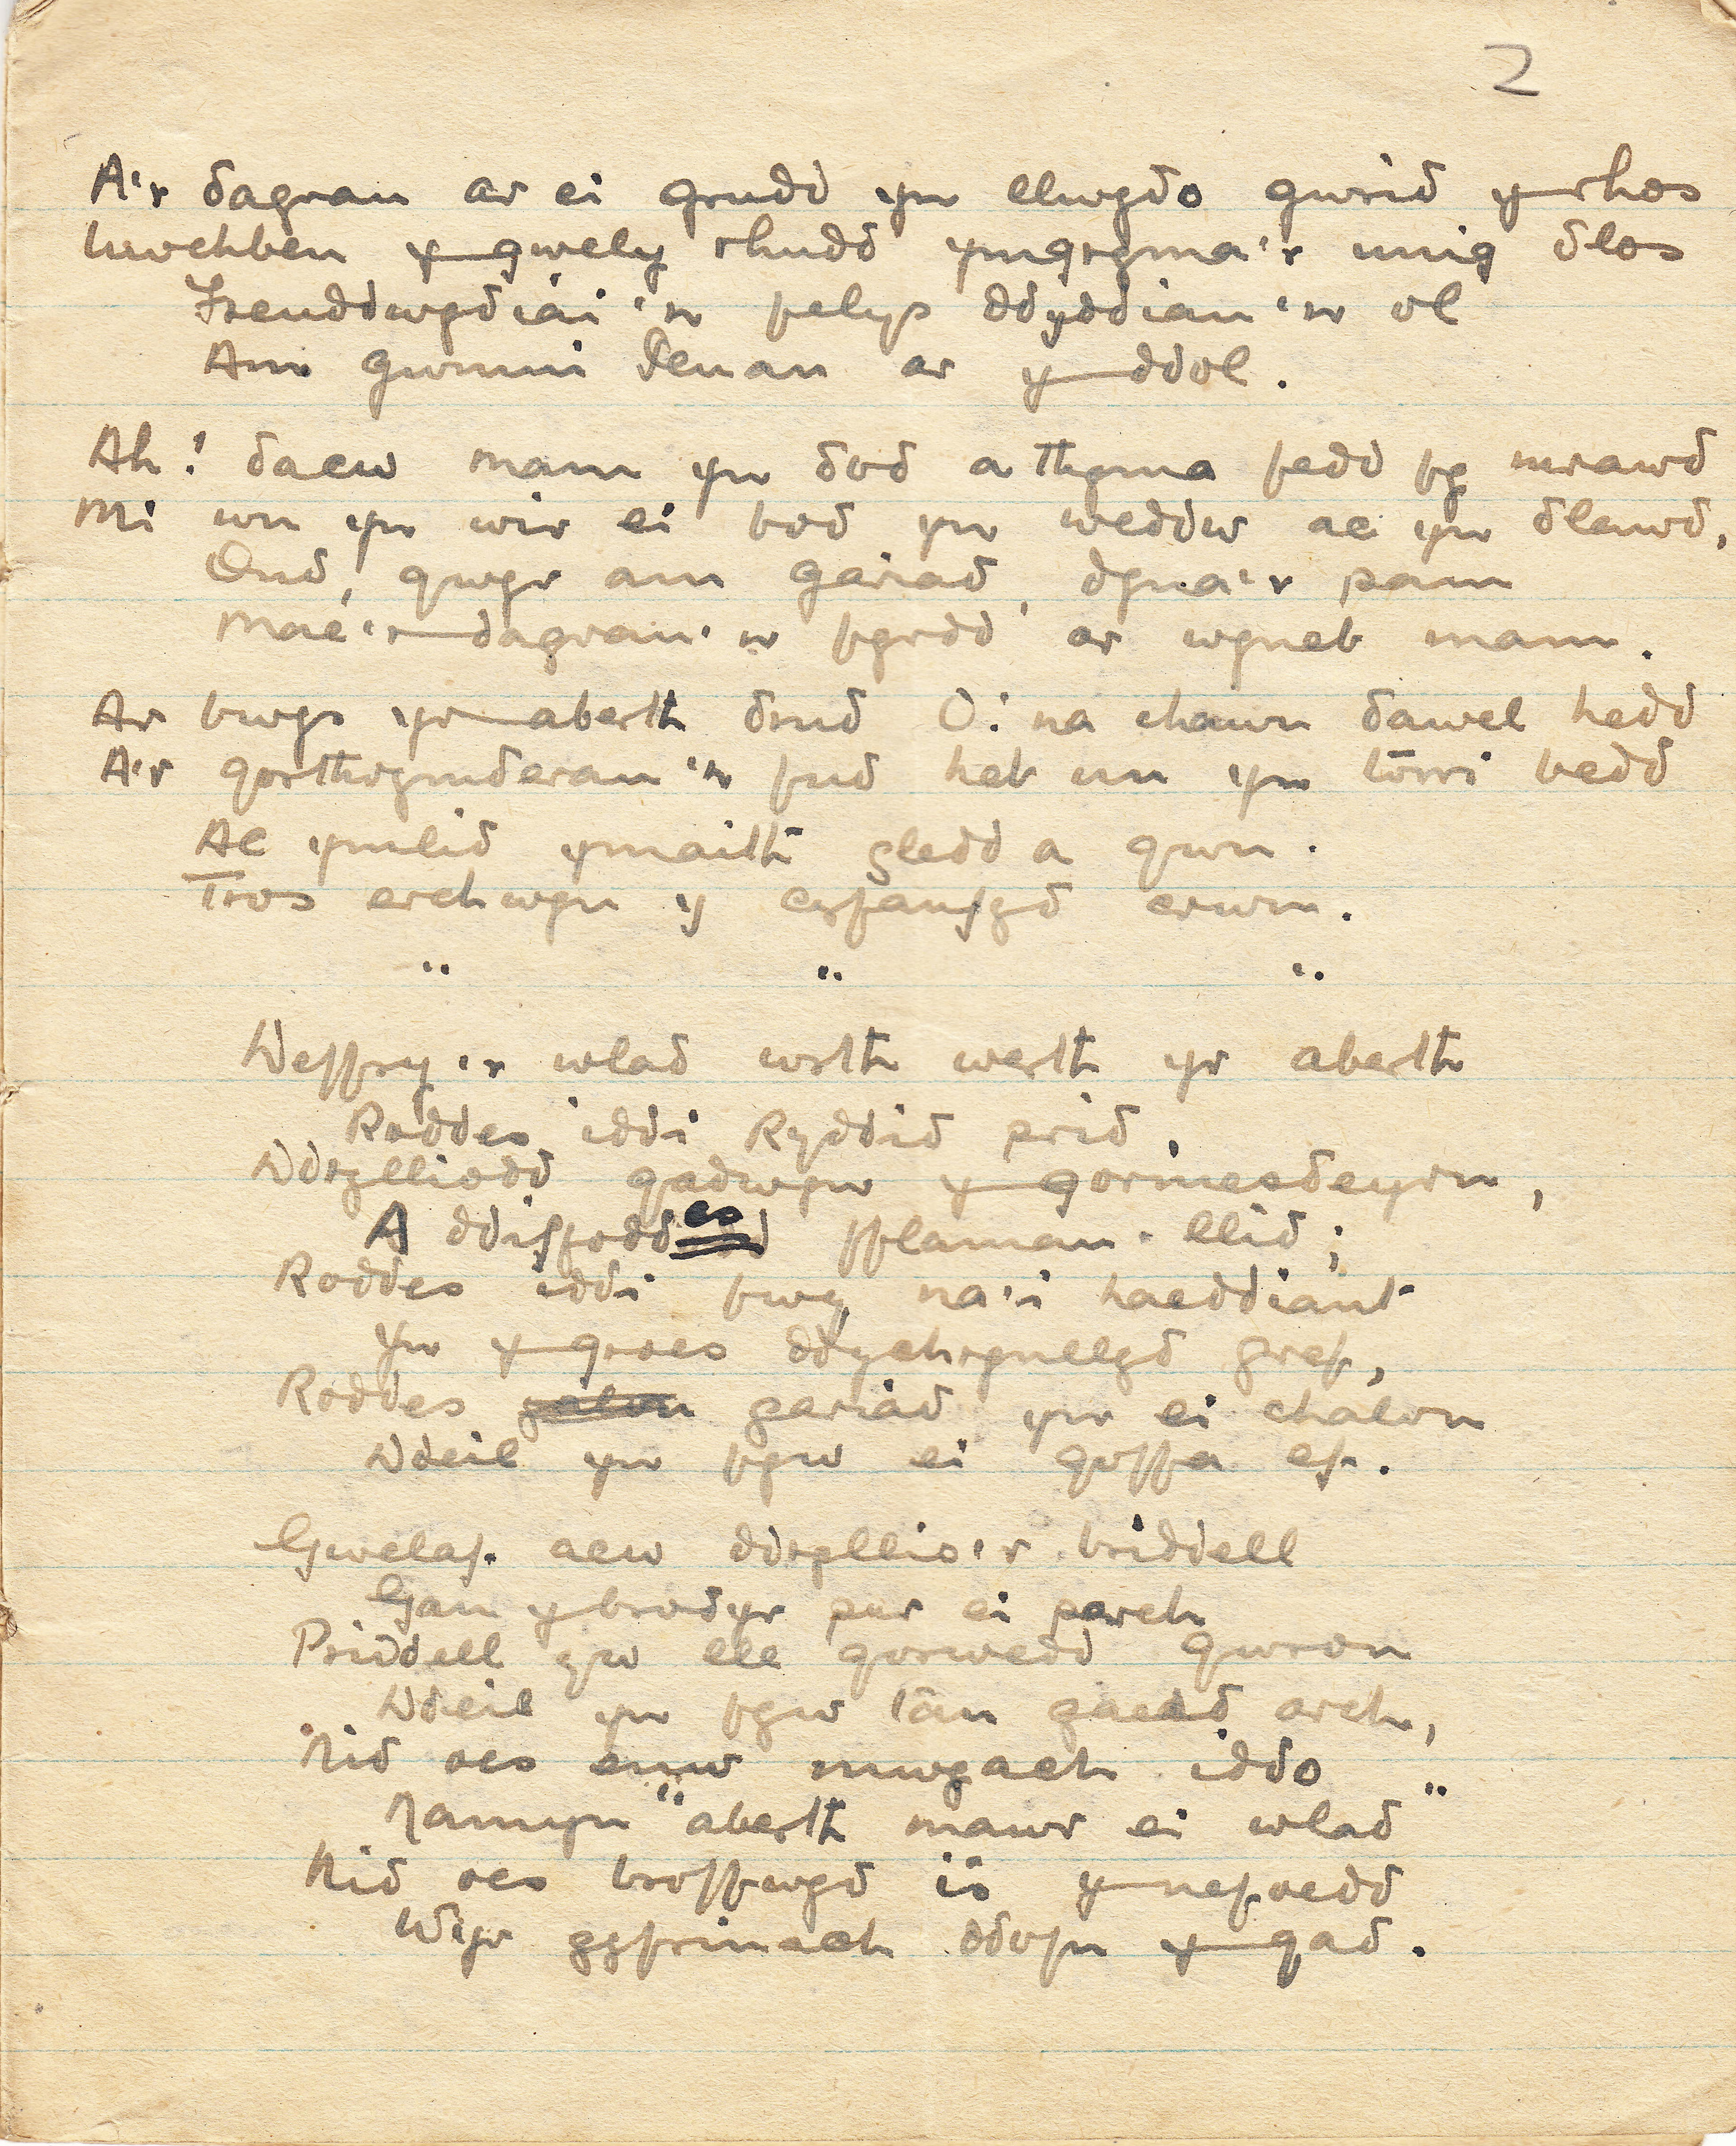 2
A'r dagrau ar ei grudd yn llwydo gwrid y rhos
Uwchben y gwely rhudd ymgryma'r unig dlos
Freuddwydiai 'n felys ddyddiau 'n ol
Am gwmni denau ar y ddol.
Ah! daew mam yn dod a thyma fedd fy mrawd
Mi wn yn wir ei bod yn weddw ac yn dlawd,
Ond, gwyr am gariad, dyna'r pam
Mae'r dagrau 'n fyrdd ar wyneb mam.
Ar bwys yr aberth drud O! na chawn dawel hedd
A'r gorthrymderau 'n fud heb un yn torri bedd
Ac ymlid ymaith gledd a gwn.
Tros erchwyn y cyfanfyd crwn.
" " "
Deffry'r wlad wrth werth yr aberth
Roddes iddi Ryddid prid,
Ddrylliodd gadwyn y gormesdeyrn,
A ddiffoddes fflamau llid;
Roddes iddi fwy na'i haeddiant
Yn y groes ddychrynllyd gref,
Roddes galon gariad yn ei chalon
Ddeil yn fyw ei goffa ef.
Gwelaf acw ddryllio'r briddell
Gan y brodyr pur ei parch
Priddell yw lle gorwedd gwron
Ddeil yn fyw tan gaead arch,
Nid oes enw mwyach iddo
Namyn "aberth mawr ei wlad"
Nid oes broffwyd is y nefoedd
Wyr gyfrinach ddofn y gad.